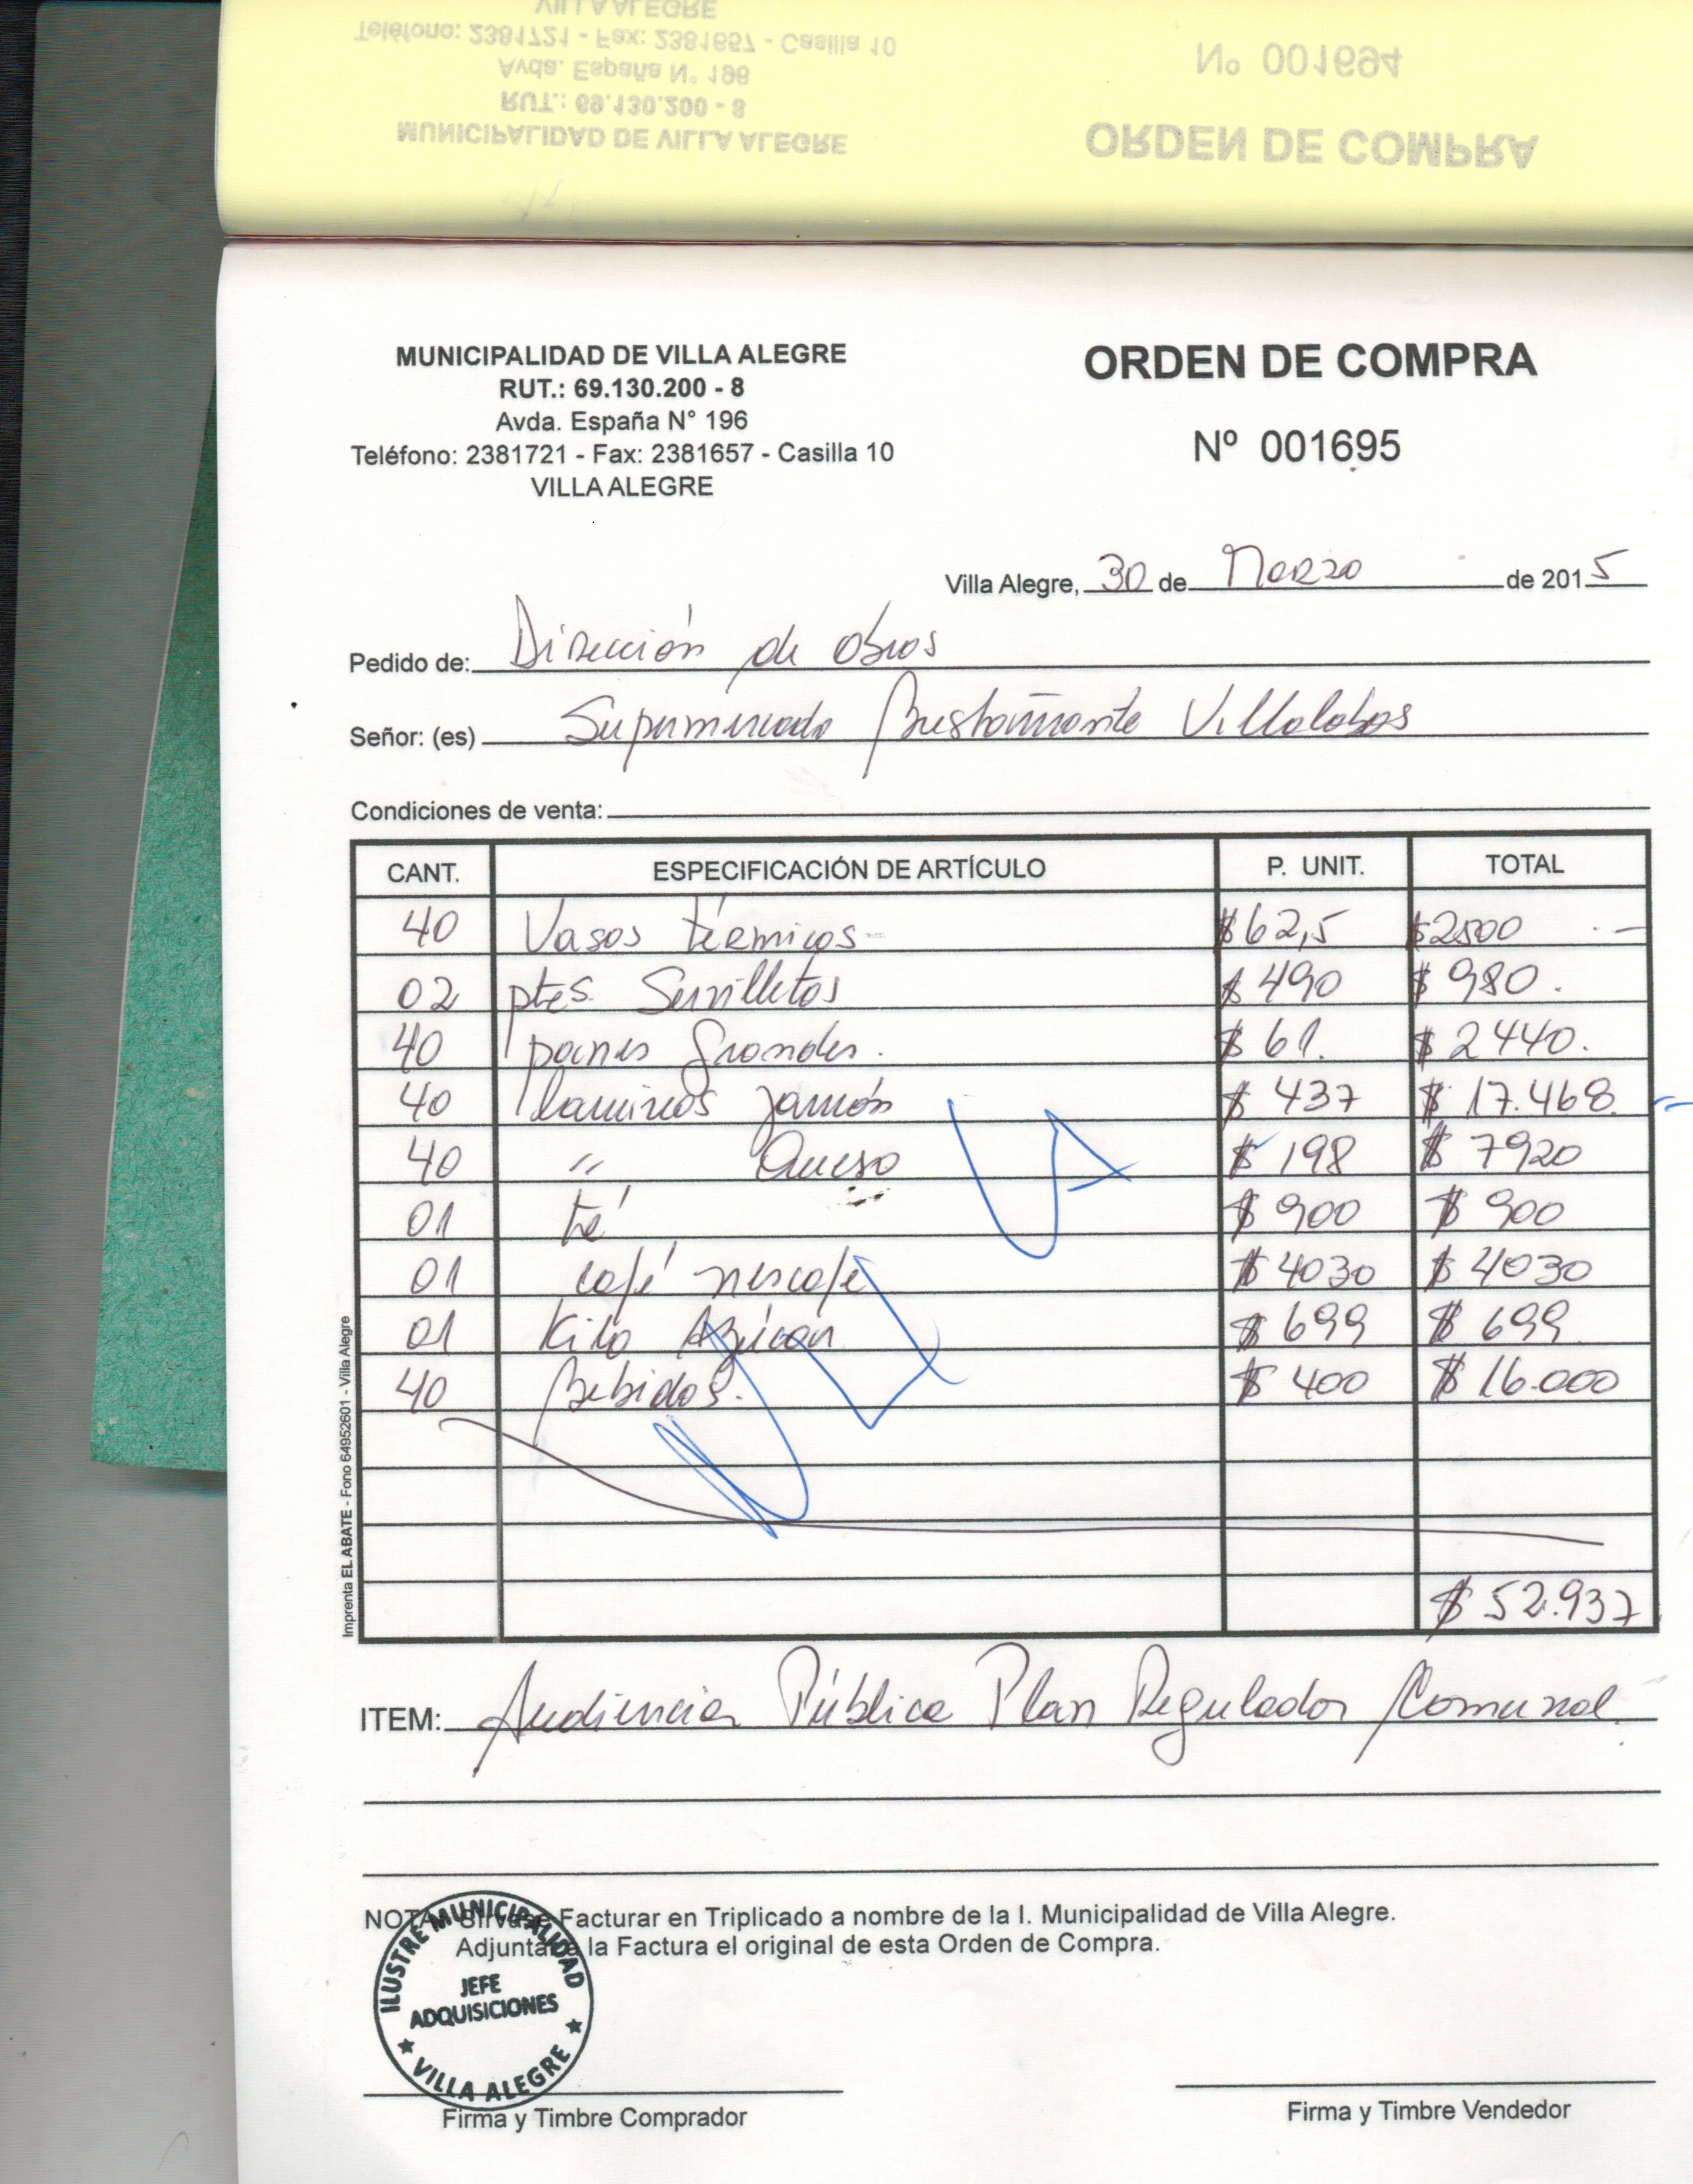 VILLA ALEGRE
Teléfono: 2381721 - Fax: 2381657 - Casilla 10
Avda. España N° 196
RUT.: 69.130.200 - 8
MUNICIPALIDAD DE VILLA ALEGRE
Nº 001694
ORDEN DE COMPRA
MUNICIPALIDAD DE VILLA ALEGRE
RUT.: 69.130.200 - 8
Avda. España N° 196
Teléfono: 2381721 - Fax: 2381657 - Casilla 10
VILLA ALEGRE
ORDEN DE COMPRA
Nº 001695
Villa Alegre, 30 de Marzo de 2015
Pedido de: Dirección de Obras
Señor: (es) Supermercado Bustamante Villalobos
Condiciones de venta:
CANT. ESPECIFICACIÓN DE ARTÍCULO P. UNIT. TOTAL
40 Vasos térmicos $62,5 $2500 .-
02 ptes. Servilletas $ 490 $ 980.
40 panes grandes. $ 61. $ 2440.
40 laminas jamón $ 437 $ 17.468.
40 " Queso $ 198 $ 7920
01 té $ 900 $ 900
01 café nescafe $ 4030 $ 4030
01 Kilo Azúcar $ 699 $ 699
40 Bebidas. $ 400 $ 16.000
NULA
$ 52.937
ITEM: Audiencia Pública Plan Regulador Comunal.
NOTA: Sírvase Facturar en Triplicado a nombre de la I. Municipalidad de Villa Alegre.
Adjuntar a la Factura el original de esta Orden de Compra.
ILUSTRE MUNICIPALIDAD
JEFE
ADQUISICIONES
★ VILLA ALEGRE ★
Firma y Timbre Comprador
Firma y Timbre Vendedor
Imprenta EL ABATE - Fono 64952601 - Villa Alegre